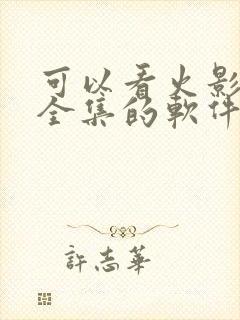 可以看火影
全集的軟件
許志華